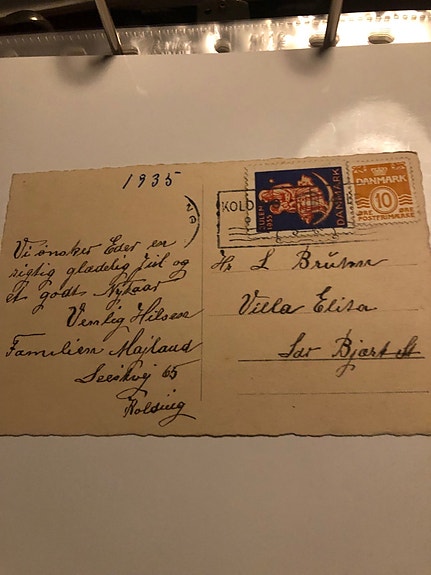 1935
KOLD
JULEN
1935
DANMARK
DANMARK
10
ØRE ØRE
POSTFRIMÆRKE
Vi ønsker Eder en
rigtig glædelig Jul og
et godt Nytaar
Venlig Hilsen
Familien Majland
65
Kolding
Hr L Brühn
Villa Elisa
Sdr Bjært St